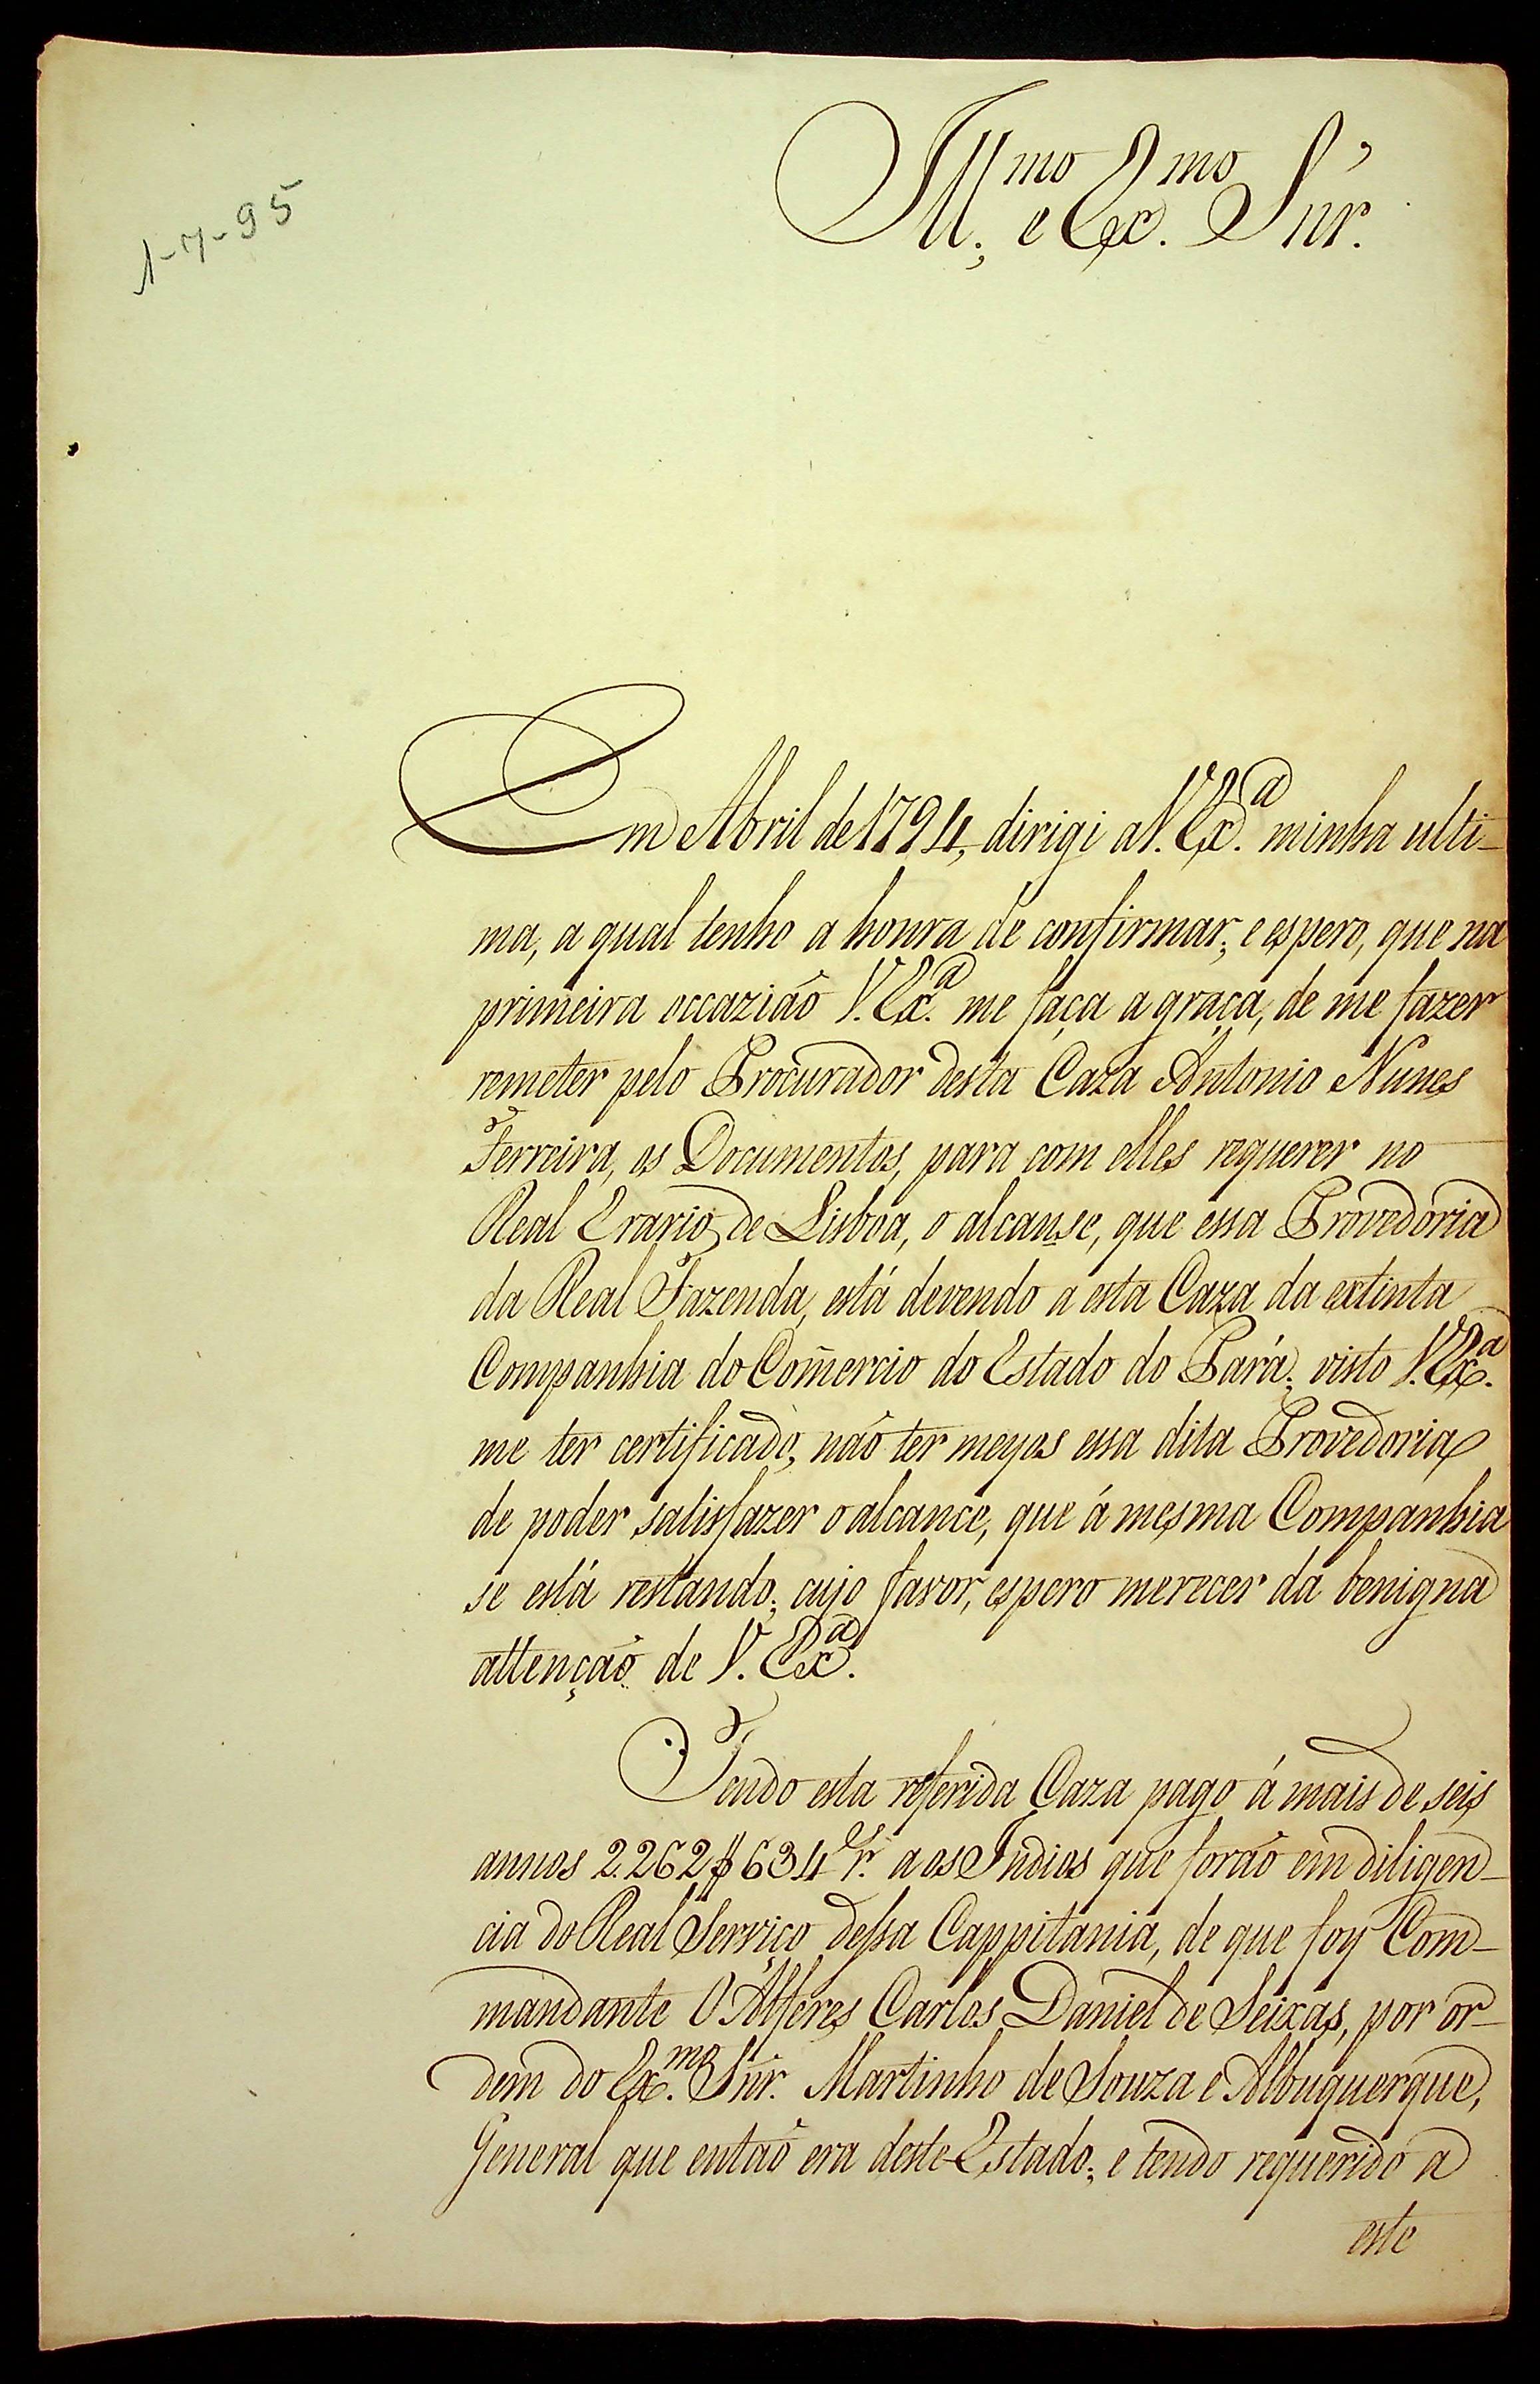 Ill.mo e Ex.mo Snr.
1-7-95
Em Abril de 1794, dirigi a V. Ex.a minha ulti-
ma, a qual tenho a honra de confirmar; e espero, que na
primeira occazião V. Ex.a me faça a graça, de me fazer
remeter pelo Procurador desta Caza Antonio Nunes
Ferreira, os Documentos, para com elles requerer no
Real Erario de Lisboa, o alcanse, que essa Provedoria
da Real Fazenda, está devendo a esta Caza da extinta
Companhia do Com̃ercio do Estado do Pará; visto V. Ex.a
me ter certificado, não ter meyos essa dita Provedoria
de poder satisfazer o alcance, que á mesma Companhia
se está restando; cujo favor, espero merecer da benigna
attenção de V. Ex.a
Tendo esta referida Caza pago á mais de seis
annos 2.262$634 r.s aos Indios que forão em diligen-
cia do Real Serviço dessa Cappitania, de que foy Com-
mandante O Alferes Carlos Daniel de Seixas, por or-
dem do Ex.mo Snr. Martinho de Souza e Albuquerque,
General que então era deste Estado; e tendo requerido a
este